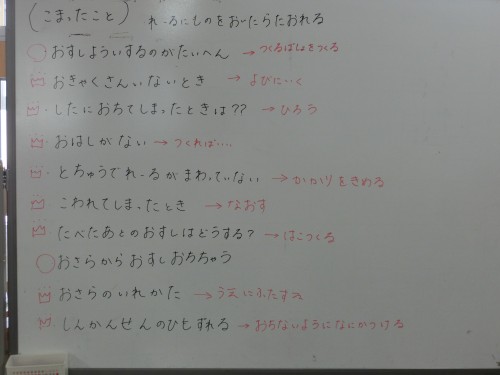 (こまったこと) れーるにものをおーたらたおれる
おすしよういするのがたいへん →つくるばしょをつくる
おきゃくさんいないとき →よびにいく
したにおちてしまったときは?? →ひろう
おはしがない →つくれば....
とちゅうでれーるがまわっていない →かかりをきめる
こわれてしまったとき →なおす
たべたあとのおすしはどうする? →はこつくる
おさらからおすしおちちゃう
おさらのいれかた →うえにふたす
しんかんせんのひもずれる →おちないようになにかつける